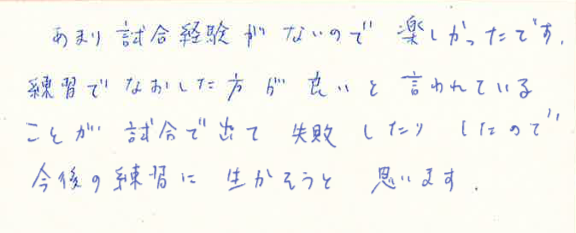 あまり試合経験がないので楽しかったです.
練習でなおした方が良いと言われている
ことが試合で出て失敗したりしたので
今後の練習に生かそうと思います.